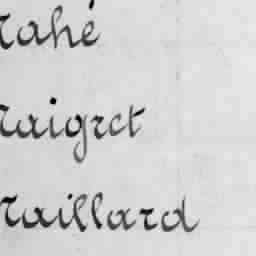 Mahé
Maigret
Maillard